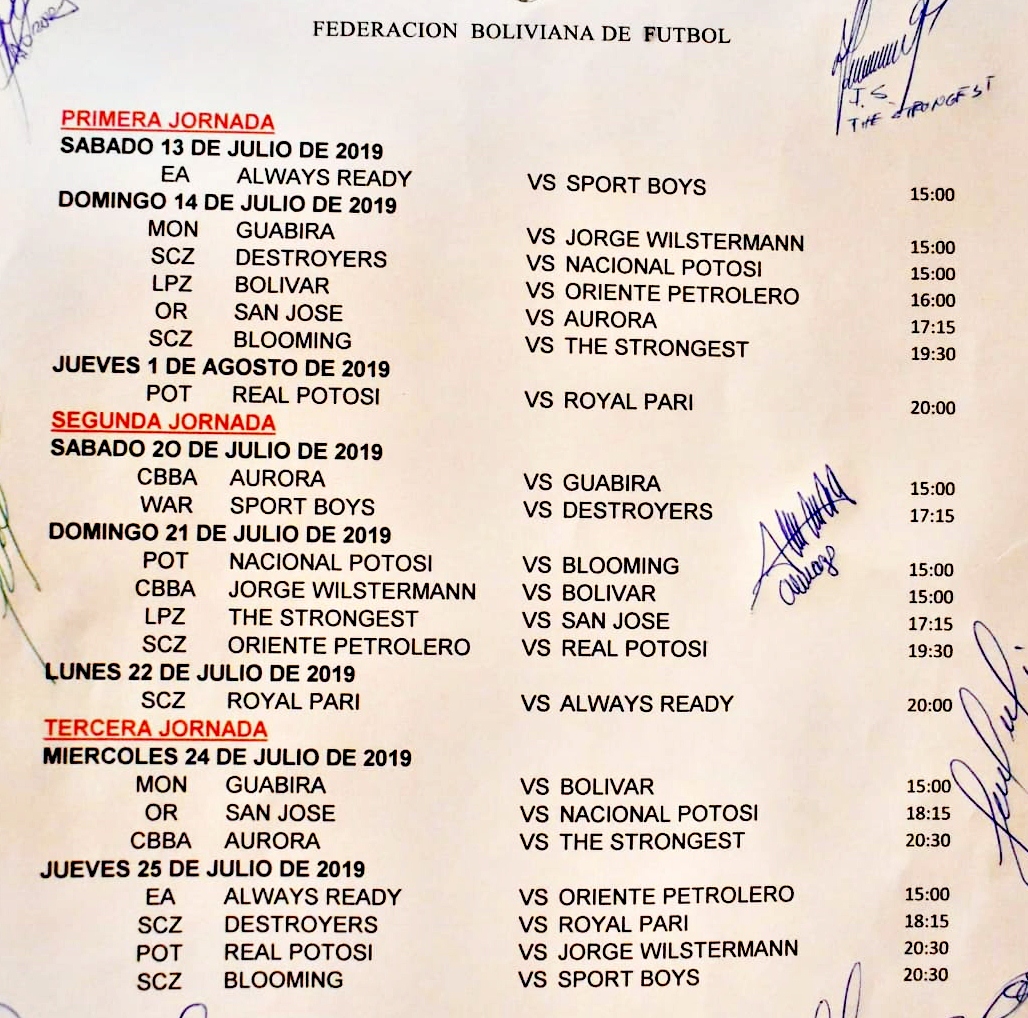 FEDERACION BOLIVIANA DE FUTBOL
J.S.
THE STRONGEST
PRIMERA JORNADA
SABADO 13 DE JULIO DE 2019
EA ALWAYS READY VS SPORT BOYS 15:00
DOMINGO 14 DE JULIO DE 2019
MON GUABIRA VS JORGE WILSTERMANN 15:00
SCZ DESTROYERS VS NACIONAL POTOSI 15:00
LPZ BOLIVAR VS ORIENTE PETROLERO 16:00
OR SAN JOSE VS AURORA 17:15
SCZ BLOOMING VS THE STRONGEST 19:30
JUEVES 1 DE AGOSTO DE 2019
POT REAL POTOSI VS ROYAL PARI 20:00
SEGUNDA JORNADA
SABADO 2O DE JULIO DE 2019
CBBA AURORA VS GUABIRA 15:00
WAR SPORT BOYS VS DESTROYERS 17:15
DOMINGO 21 DE JULIO DE 2019
POT NACIONAL POTOSI VS BLOOMING 15:00
CBBA JORGE WILSTERMANN VS BOLIVAR 15:00
LPZ THE STRONGEST VS SAN JOSE 17:15
SCZ ORIENTE PETROLERO VS REAL POTOSI 19:30
LUNES 22 DE JULIO DE 2019
SCZ ROYAL PARI VS ALWAYS READY 20:00
TERCERA JORNADA
MIERCOLES 24 DE JULIO DE 2019
MON GUABIRA VS BOLIVAR 15:00
OR SAN JOSE VS NACIONAL POTOSI 18:15
CBBA AURORA VS THE STRONGEST 20:30
JUEVES 25 DE JULIO DE 2019
EA ALWAYS READY VS ORIENTE PETROLERO 15:00
SCZ DESTROYERS VS ROYAL PARI 18:15
POT REAL POTOSI VS JORGE WILSTERMANN 20:30
SCZ BLOOMING VS SPORT BOYS 20:30